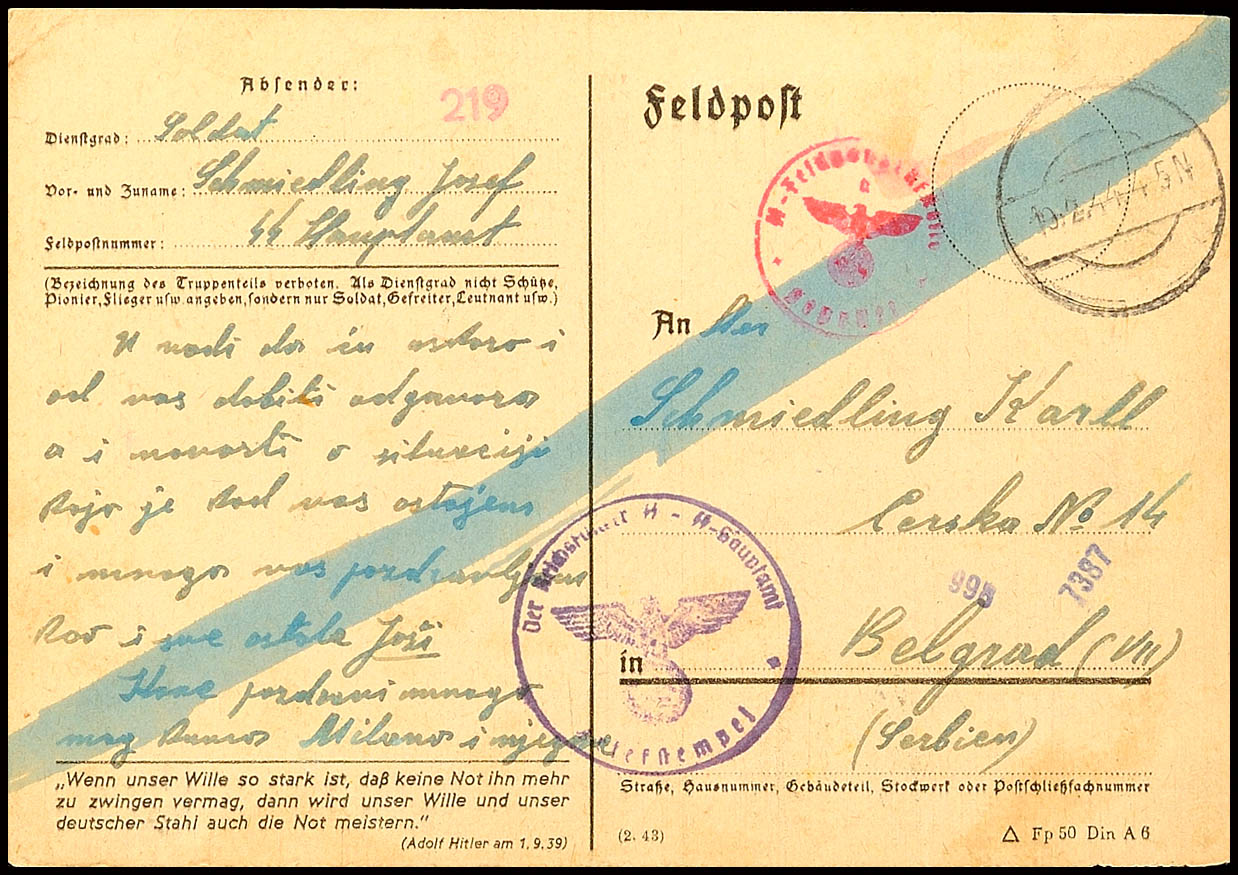 Absender:
219
Dienstgrad: Soldat
Vor- und Zuname: Schmiedling Josef
Feldpostnummer: SS Hauptamt
(Bezeichnung des Truppenteils verboten. Als Dienstgrad nicht Schütze,
Pionier, Flieger usw. angeben, sondern nur Soldat, Gefreiter, Leutnant usw.)
U nadi da ću uskoro i
od vas dobiti odgovora
a i novosti o situaciji
koja je kod vas ostajem
i mnogo vas pozdravljam
kao i sve ostale Joši
pozdravi mnogo
mog kuma Milana i
„Wenn unser Wille so stark ist, daß keine Not ihn mehr
zu zwingen vermag, dann wird unser Wille und unser
deutscher Stahl auch die Not meistern."
(Adolf Hitler am 1.9.39)
Feldpost
SS-Feldpost
10.2.44
An
Schmiedling Karll
Cerska № 14
995
7387
Der Reichsführer SS - SS-Hauptamt
Briefstempel
in Belgrad (VII)
(Serbien)
Straße, Hausnummer, Gebäudeteil, Stockwerk oder Postschließfachnummer
(2. 43)
△ Fp 50 Din A 6